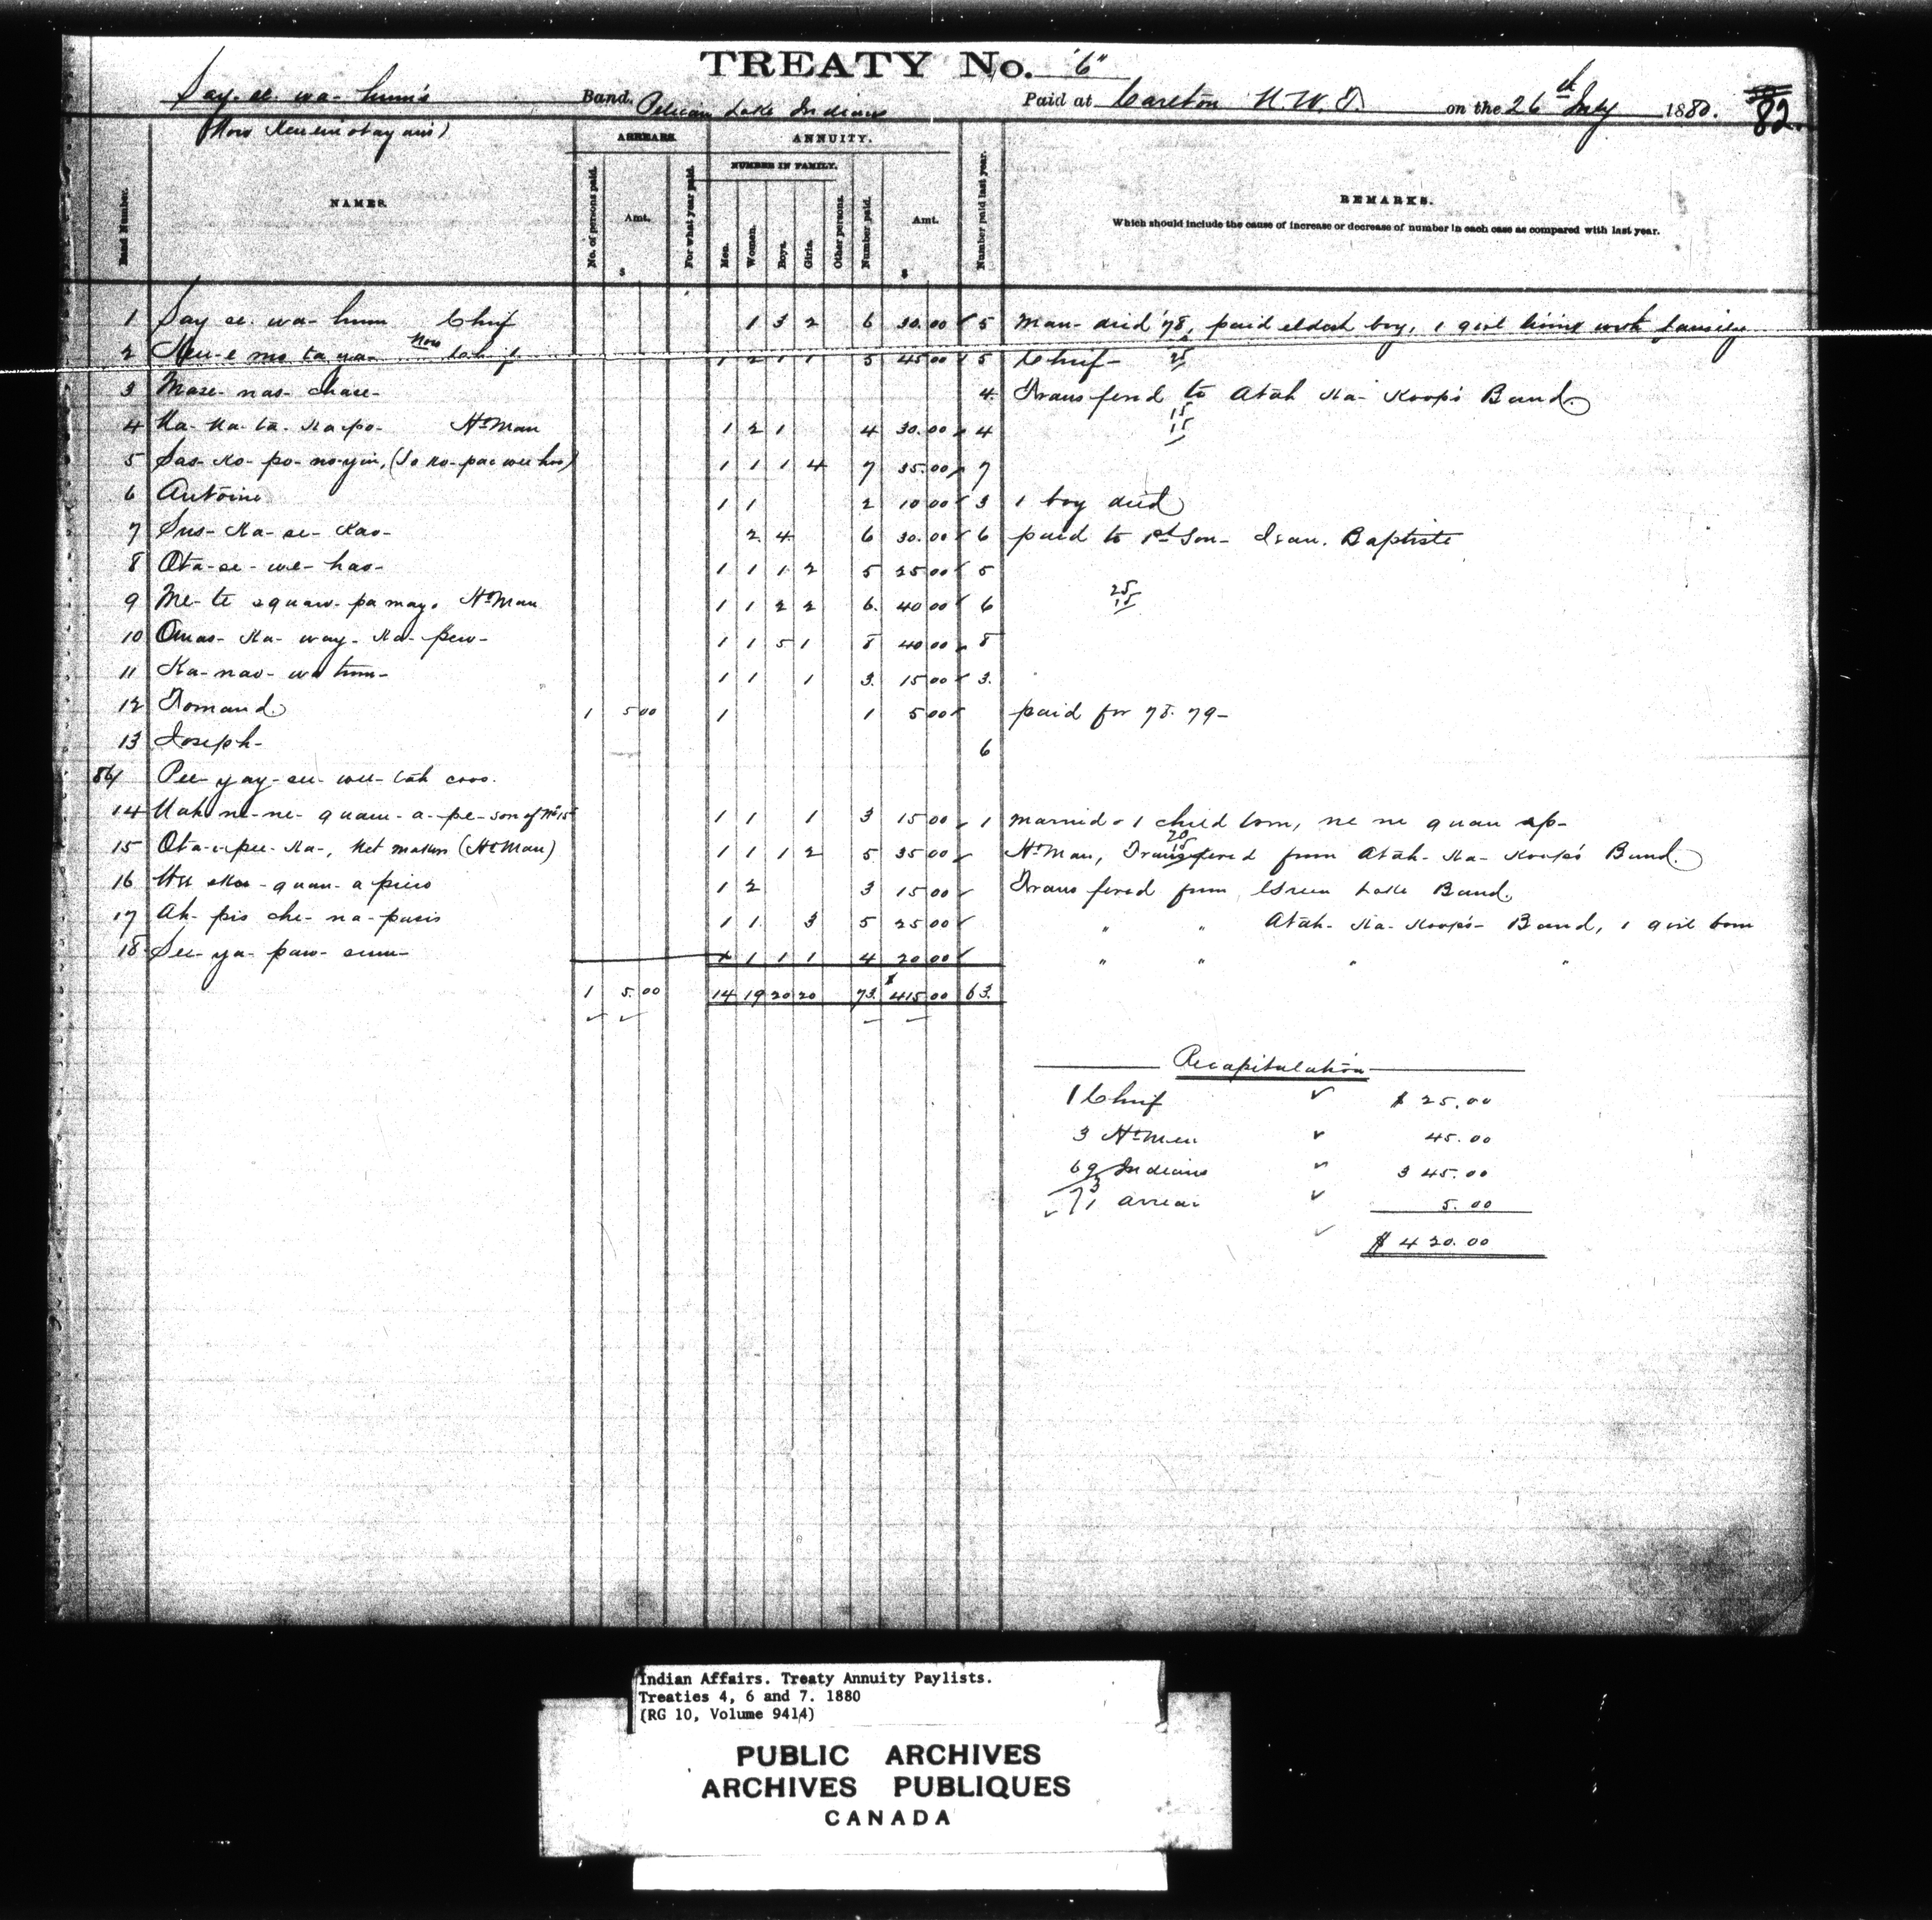 TREATY No. "6"
Say. se. wa- hum's Band. Pelican Lake Indians Paid at Carlton N.W.T on the 26th July 1880. 82.
(Now Keneenotayam)
ARREARS. ANNUITY.
NUMBER IN FAMILY.
Band Number. NAMES. No. of persons paid. Amt. $ For what year paid. Men. Women. Boys. Girls. Other persons. Number paid. Amt. $ Number paid last year. REMARKS.
Which should include the cause of increase or decrease of number in each case as compared with last year.
1 Say se. wa- hum Chief 1 3 2 6 30.00 5 Man- died '78, paid eldest boy, 1 girl living with family
2 now Chief 1 2 1 1 5 45.00 5 Chief- 25
3 Mase- nas- chase- 4 Transfered to Atah Ka- Koop's Band.
4 Ka- Ka- ta- Kaypo- Hd Man 1 2 1 4 30.00 4 15 15
5 Sas- Ko- po- no-yin, 1 1 1 4 7 35.00 7
6 Antoine 1 1 2 10 00 3 1 boy died
7 Sus- Ka- se- Kas- 2 4 6 30.00 6 paid to 1st Son- Jean. Baptiste
8 Ota- se- we- has- 1 1 1 2 5 25 00 5
9 Me- te squaw- pa may. Hd Man 1 1 2 2 6. 40 00 6 25 15
10 Omas- Ka- way- Ka- pew- 1 1 5 1 8 40 00 8
11 Ka- nao- wa tum- 1 1 1 3. 15 00 3.
12 Tomand 1 5 00 1 1 5 00 paid for 78. 79-
13 Joseph- 6
84 Pee- yay- see- wee- tah coos.
14 Kah ne- ne- quaw- a- pe- son of No 15 1 1 1 3 15 00 1 married - 1 child born, ne ne quan ap-
15 Ota- a- pee- Ka-, Net maker (Hd Man) 1 1 1 2 5 35 00 20 15 Hd Man, Transfered from Atah- Ka- Koop's Band.
16 quan- a piew 1 2 3 15 00 Transfered from Green Lake Band.
17 Ah- pis che- na- pasis 1 1. 3 5 25 00 " " Atah- Ka- Koop's- Band, 1 girl born
18 See- ya- paw- 1 1 1 1 4 20 00 " " " "
1 5.00 14 19 20 20 73. $ 415 00 63.
Recapitulation
1 Chief $ 25.00
3 Hd Men 45.00
69 Indians 345.00
73 1 arrear 5.00
$ 420.00
Indian Affairs. Treaty Annuity Paylists.
Treaties 4, 6 and 7. 1880
(RG 10, Volume 9414)
PUBLIC ARCHIVES
ARCHIVES PUBLIQUES
CANADA